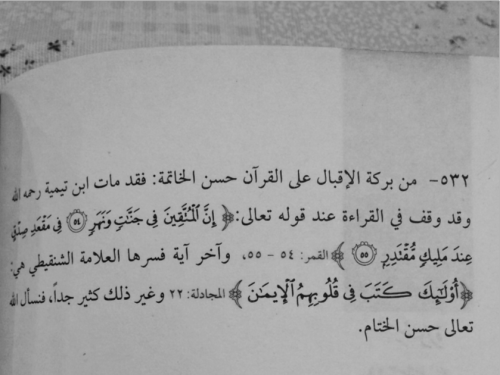 ٥٣٢- من بركة الإقبال على القرآن حسن الخاتمة: فقد مات ابن تيمية رحمه الله
وقد وقف في القراءة عند قوله تعالى: ﴿ إِنَّ الْمُتَّقِينَ فِي جَنَّاتٍ وَنَهَرٍ ۝٥٤ فِي مَقْعَدِ صِدْقٍ
عِندَ مَلِيكٍ مُّقْتَدِرٍ ۝٥٥ ﴾ القمر: ٥٤ - ٥٥، وآخر آية فسرها العلامة الشنقيطي هي:
﴿ أُوْلَٰئِكَ كَتَبَ فِي قُلُوبِهِمُ الْإِيمَٰنَ ﴾ المجادلة: ٢٢ وغير ذلك كثير جداً، فنسأل الله
تعالى حسن الختام.